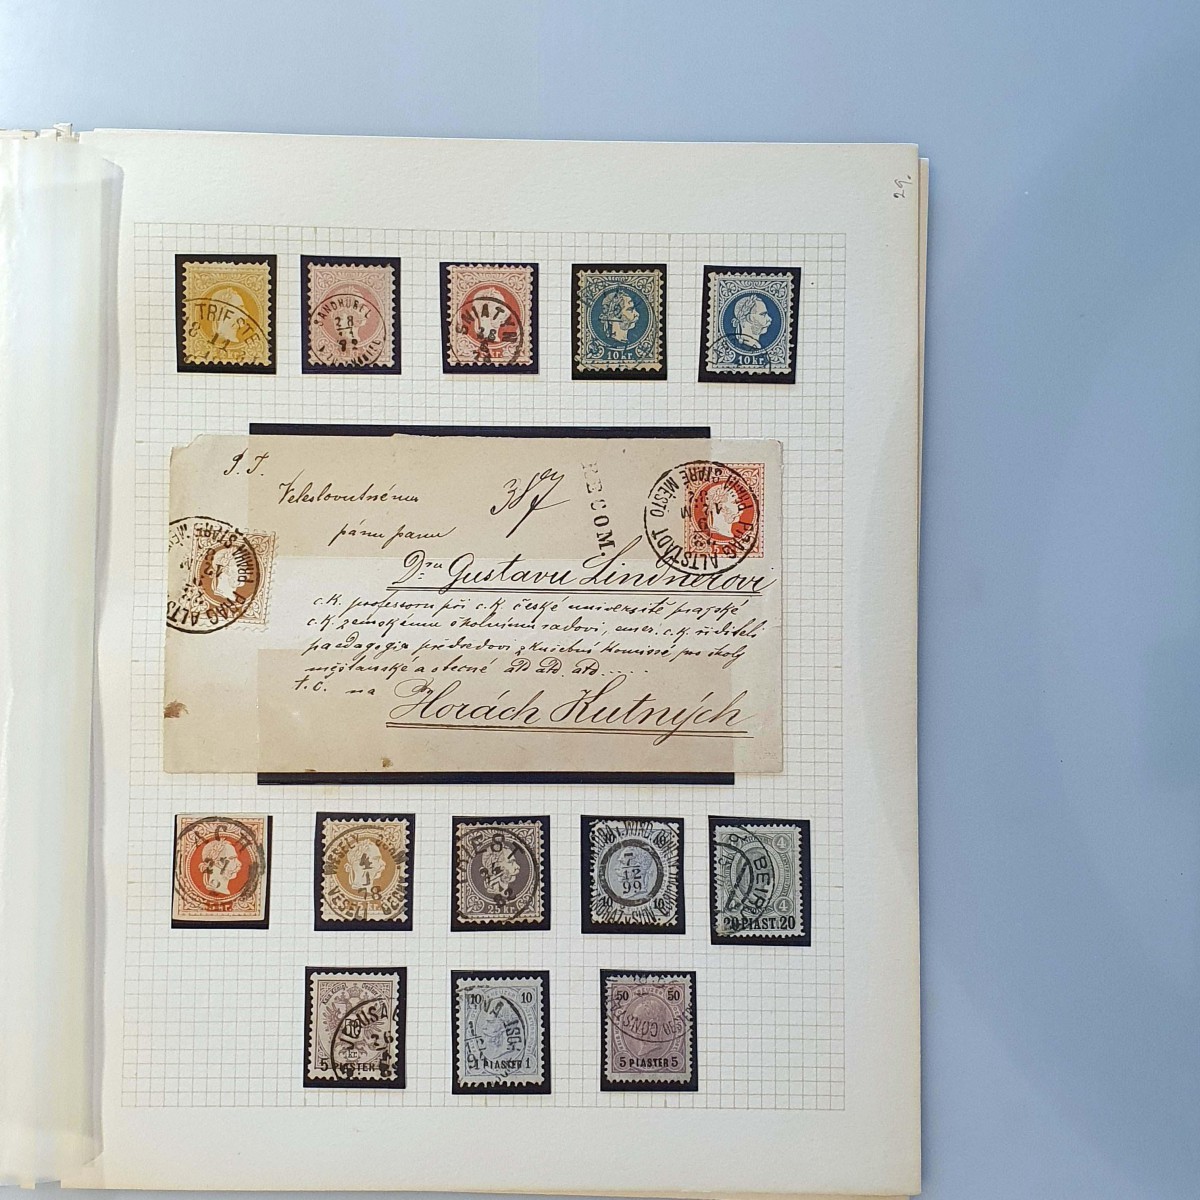 29.
TRIESTE
11
SANDHÜBEL
28
SNIATYN
28
10 kr.
10 kr.
P. T.
Veleslovutnému
pánu panu
RECOM.
PRAG ALTSTADT
PRAHA STARÉ MĚSTO
PRAG ALTST
PRAHA STARÉ MĚS
Dru Gustavu Lindnerovi
c.k. professoru při c.k. české universitě pražské
c.k. zemskému školnímu radovi, emer. c.k. řediteli
paedagogia předsedovi zkušební komisse pro školy
měšťanské a obecné atd atd. atd.....
t. č. na
Horách Kutných
27
4
1
78
TRIEST
25 kr.
82
7
12
99
10 10
BEIR
4 4
20 PIAST. 20
JERUSA
26
5 PIASTER 5
10 10
1
12
94
1 PIASTER 1
50 50
CONSTA
5 PIASTER 5